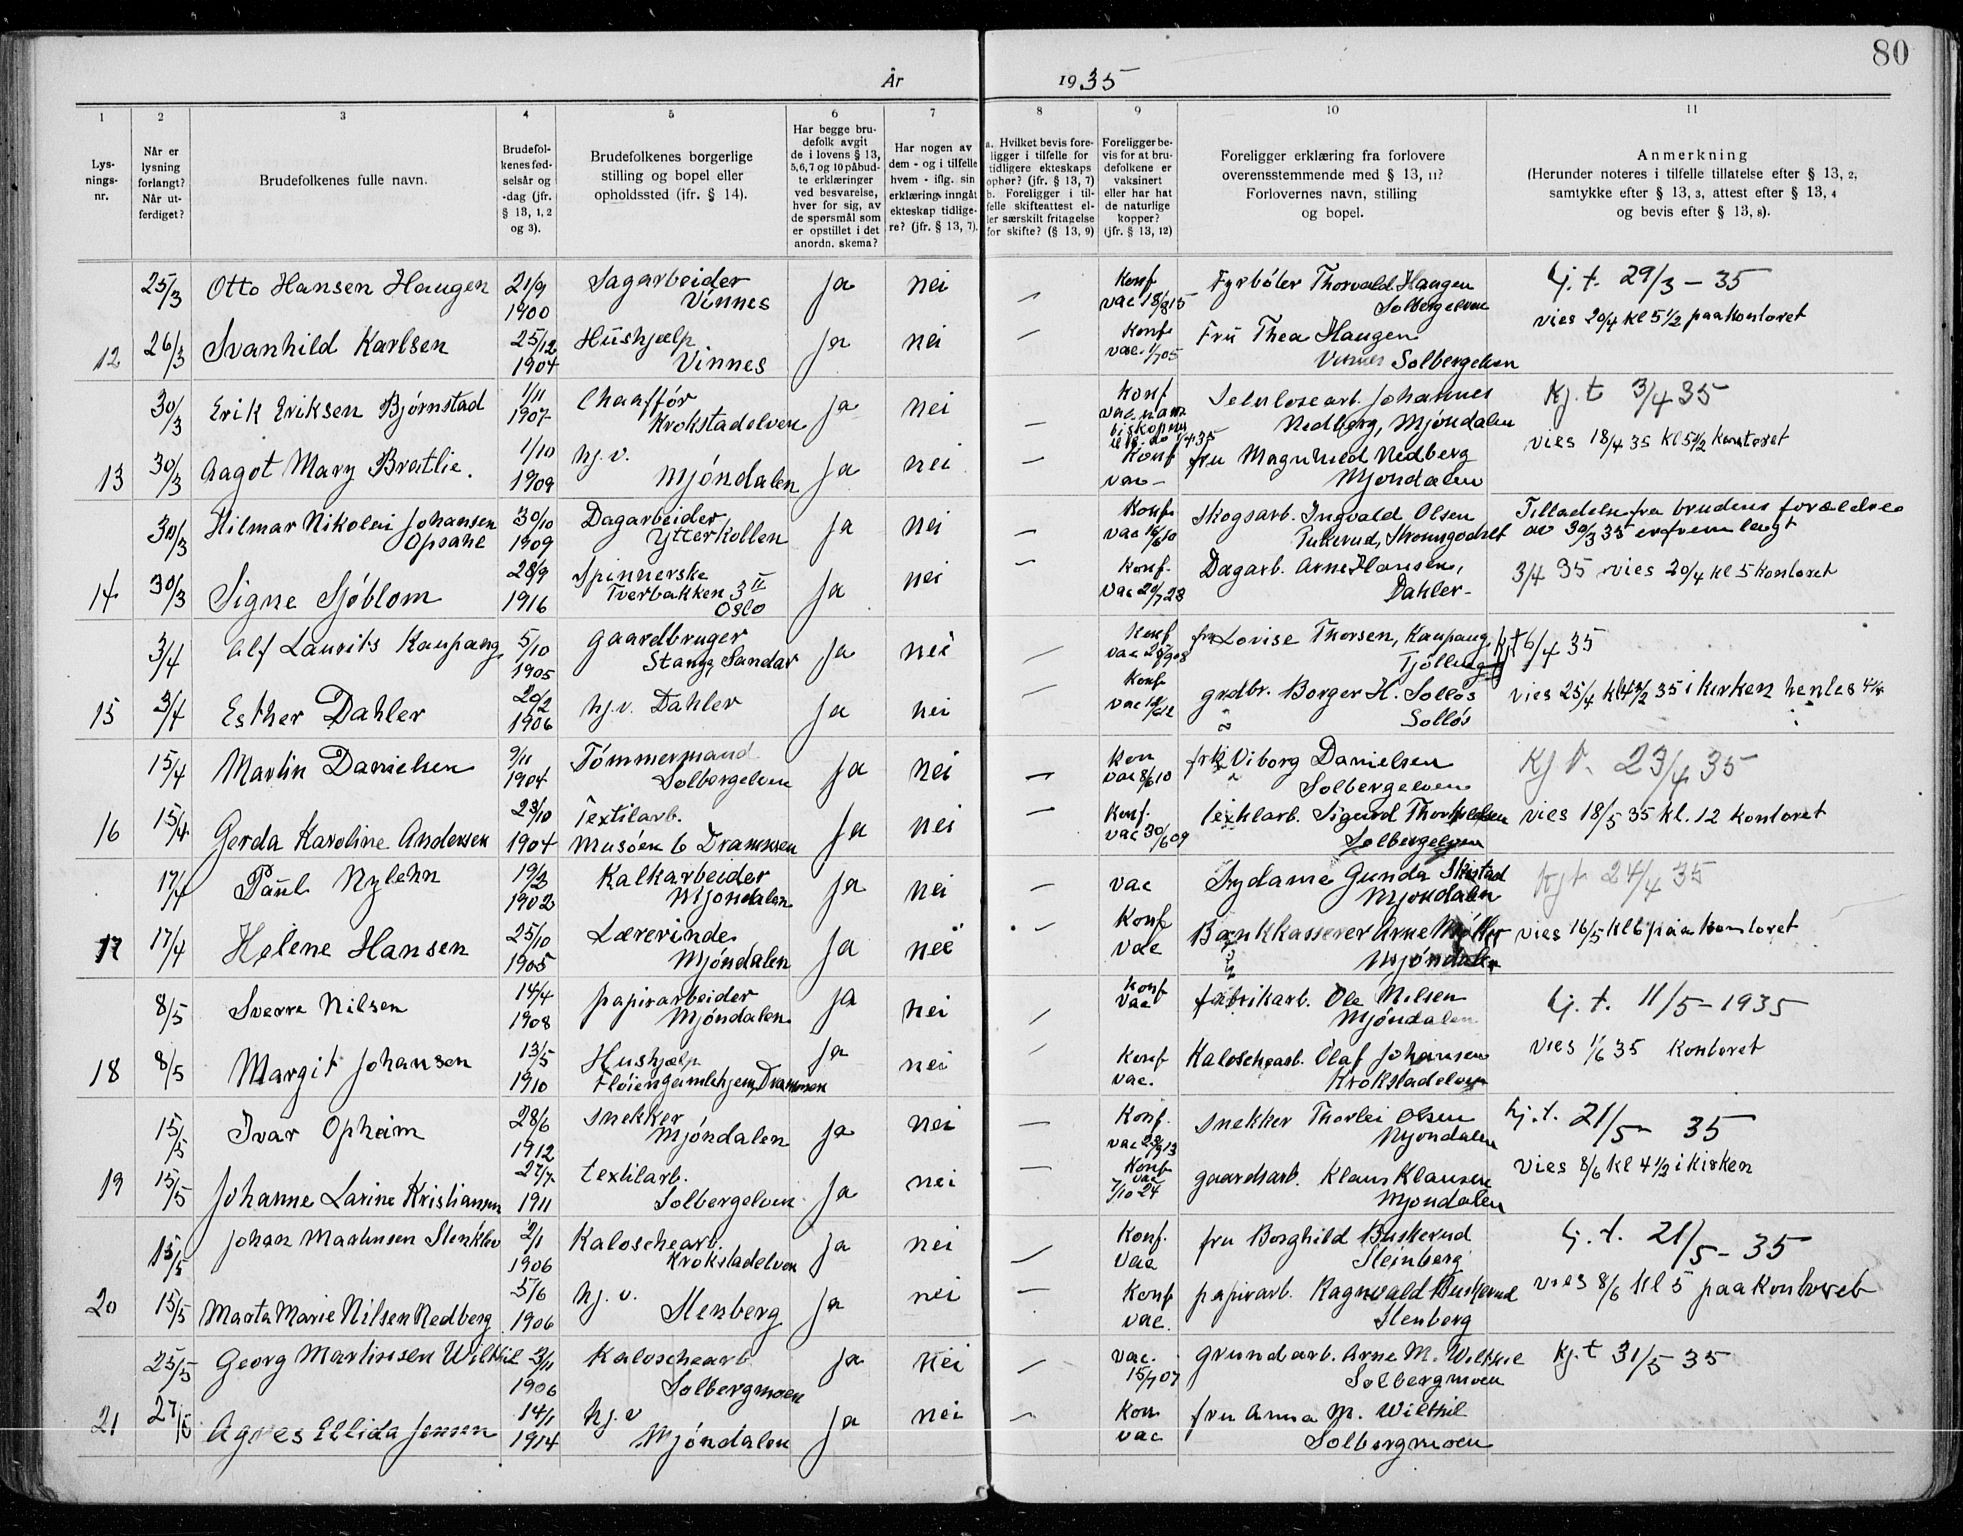 80
År 1935
1 2 3 4 5 6 7 8 9 10 11
Lysnings-nr.
Når er lysning forlangt? Når utferdiget?
Brudefolkenes fulle navn.
Brudefolkenes fødselsår og -dag (jfr. § 13, 1, 2 og 3).
Brudefolkenes borgerlige stilling og bopel eller opholdssted (ifr. § 14).
Har begge brudefolk avgit de i lovens § 13, 5,6,7 og 10 påbudte erklæringer ved besvarelse, hver for sig, av de spørsmål som er opstillet i det anordn. skema?
Har nogen av dem - og i tilfelle hvem - iflg. sin erklæring inngåt ekteskap tidligere? (jfr. § 13, 7).
a. Hvilket bevis foreligger i tilfelle for tidligere ekteskaps ophør? (jfr. § 13, 7) b. Foreligger i tilfelle skifteattest eller særskilt fritagelse for skifte? (§ 13, 9)
Foreligger bevis for at brudefolkene er vaksinert eller har hat de naturlige kopper? (jfr. § 13, 12)
Foreligger erklæring fra forlovere overensstemmende med § 13, 11? Forlovernes navn, stilling og bopel.
Anmerkning (Herunder noteres i tilfelle tillatelse efter § 13, 2, samtykke efter § 13, 3, attest efter § 13, 4 og bevis efter § 13, 8).
25/3 Otto Hansen Haugen 21/9 1900 Sagarbeider Vinnes Ja nei — Konf vac 18/8 15 Fyrbøter Thorvald Haugen Solbergelven kj. t. 29/3 - 35
12 26/3 Svanhild Karlsen 25/12 1904 Hushjælp Vinnes Ja nei — Konf vac. 1/7 05 Fru Thea Haugen Vinnes Solbergelven vies 20/4 kl 5 1/2 paa kontoret
30/3 Erik Eriksen Bjørnstad 1/11 1907 Chaaffør Krokstadelven Ja nei — Konf vac. Selulosearb. Johannes Nedberg, Mjøndalen Kj. t 3/4 35
13 30/3 Aagot Mary Bratlie. 1/10 1909 hj. v. Mjøndalen Ja nei — Konf vac - fru Magnhild Nedberg Mjøndalen vies 18/4 35 kl 5 1/2 kontoret
30/3 Hilmar Nikolai Johansen Opsahl 30/10 1909 Dagarbeider Ytterkollen Ja nei — Konf. vac 16/6 10 Skogsarb. Ingvald Olsen Tukerud, Skoungodset Tilladelse fra brudens forældre av 30/3 35 er fremlagt
14 30/3 Signe Sjøblom 28/9 1916 Spinnerske Tverbakken 3 II Oslo Ja nei — Konf. vac 20/7 23 Dagarb. Arne Hansen, Dahler - 3/4 35 vies 20/4 kl 5 kontoret
3/4 Alf Laurits Kaupang 5/10 1905 gaardbruger Stang, Sandar Ja nei — Konf vac fru Lovise Thorsen, Kaupang, Tjølling kjt 6/4 35
15 3/4 Esther Dahler 20/2 1906 hj. v. Dahler Ja nei — Konf vac 12 grdbr. Borger H. Solløs Solløs vies 25/4 35 i kirken hentes
15/4 Martin Danielsen 9/11 1904 Tømmermand Solbergelven Ja nei — Kon vac 8/6 10 frk Viborg Danielsen Solbergelven Kj t. 23/4 35
16 15/4 Gerda Karoline Andersen 23/10 1904 Textilarb. Musøen 6 Drammen Ja nei — Konf. vac 30/6 09 textilarb. Sigurd Thorkelsen Solbergelven vies 18/5 35 kl. 12 kontoret
17/4 Paul Nylehn 19/2 1902 Kalkarbeider Mjøndalen Ja nei — vac Sydame Gunda Skistad Mjøndalen Kjt 24/4 35
17 17/4 Helene Hansen 25/10 1905 Lærerinde Mjøndalen Ja nei — Konf vac Bankkasserer Arne Møller Mjøndalen vies 16/5 kl 6 paa kontoret
8/5 Sverre Nilsen 14/4 1908 papirarbeider Mjøndalen Ja nei — Konf Vac fabrikarb. Ole Nilsen Mjøndalen kj. t. 11/5 - 1935
18 8/5 Margit Johansen 13/5 1910 Hushjælp Fløien gamlehjem, Drammen Ja nei — Konf vac. Kaloschearb. Olaf Johansen Krokstadelven vies 1/6 35 kontoret
15/5 Ivar Opheim 28/6 1912 snekker Mjøndalen Ja nei — Konf. vac 13 snekker Thorlei Olsen Mjøndalen kj. t. 21/5 - 35
19 15/5 Johanne Larine Kristiansen 27/7 1911 textilarb. Solbergelven Ja nei — Konf vac 7/10 24 gaardsarb. Klaus Klausen Mjøndalen vies 8/6 kl 4 1/2 i kirken
15/5 Johan Martinsen Stenklev 2/1 1906 Kaloschearb. Krokstadelven Ja nei — Konf. vac fru Borghild Buskerud Steinberg kj. t. 21/5 - 35
20 15/5 Marta Marie Nilsen Nedberg 5/6 1906 hj. v. Stenberg Ja nei — Konf vac. papirarb. Ragnvald Buskerud Stenberg vies 8/6 kl 5 paa kontoret
25/5 Georg Martinsen Wilthil 3/11 1906 Kaloschearb Solbergmoen Ja nei — vac. 15/7 07 grundarb. Arne M. Wilthil Solbergmoen Kj. t 31/5 35
21 27/5 Agnes Ellida Jensen 14/1 1914 hj. v Mjøndalen Ja nei — Kon vac fru Anna M. Wilthil Solbergmoen